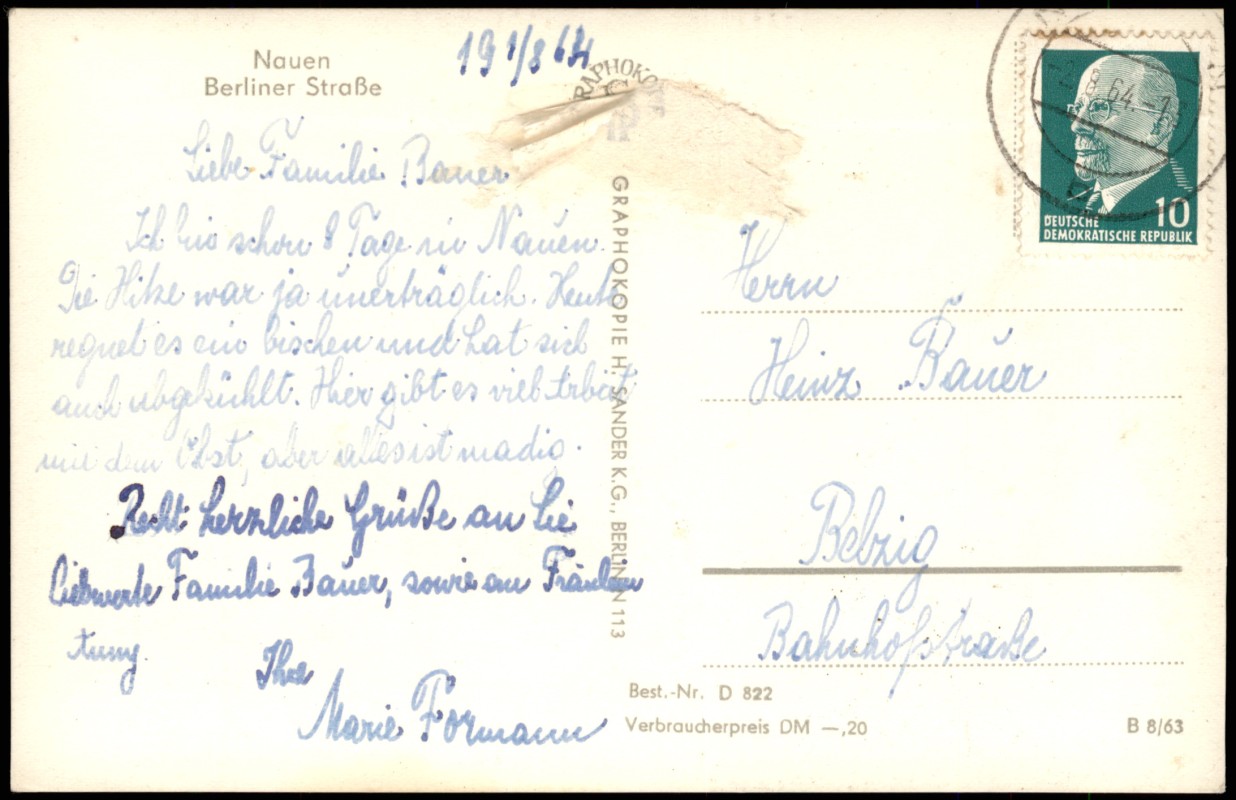 Nauen
Berliner Straße
19 1/8 64
Liebe Familie Bauer
Ich bin schon 8 Tage in Nauen.
Die Hitze war ja unerträglich. Heute
regnet es ein bischen und hat sich
auch abgekühlt. Hier gibt es viel Arbeit
mit dem Obst, aber alles ist madig.
Recht herzliche Grüße an Sie
liebwerte Familie Bauer, sowie an Fräulein
Ihre
Marie Formann
GRAPHOKO
GRAPHOKOPIE H. SANDER K.G., BERLIN N 113
-2.8.64.-1
10
DEUTSCHE
DEMOKRATISCHE REPUBLIK
Herrn
Heinz Bauer
Belzig
Bahnhofstraße
Best.-Nr. D 822
Verbraucherpreis DM —,20
B 8/63